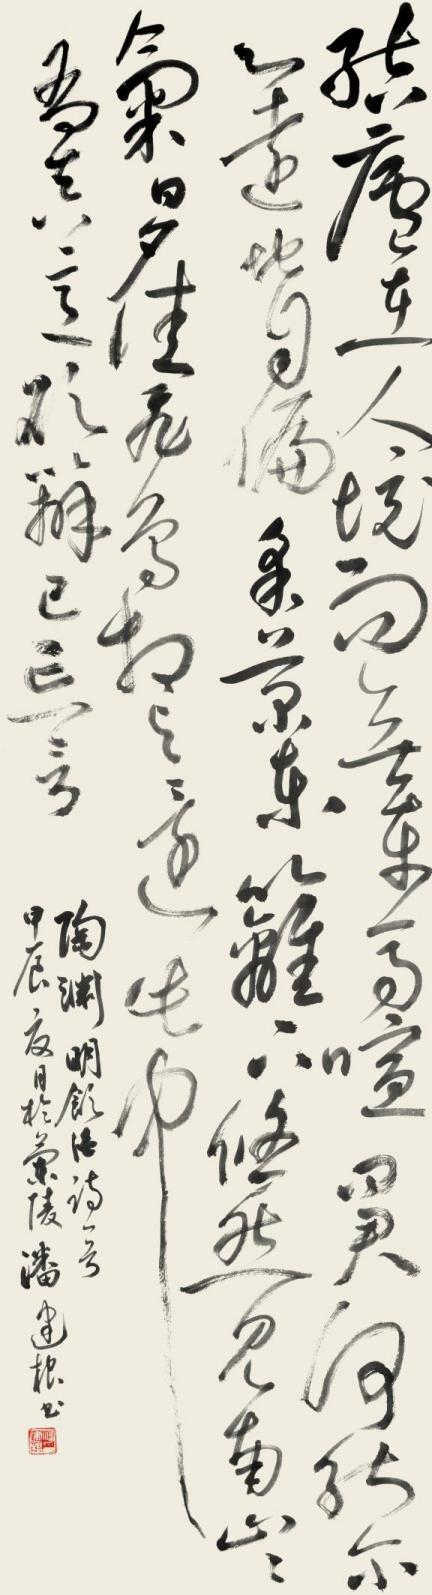 結廬在人境而無車馬喧問君何能尔
心遠地自偏采菊東籬下悠然見南山〻
氣日夕佳飛鳥相与還此中
有真意欲辯已忘言
陶淵明飲酒詩一首
甲辰夏日於蘭陵潘建根书